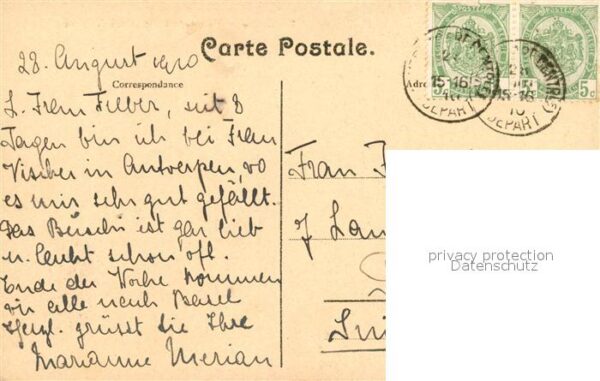 28. August 1910
Carte Postale.
Correspondance
L. Frau Felber, seit 8
Tagen bin ich bei Frau
Vischer in Antwerpen, wo
es mir sehr gut gefällt.
Das Büschi ist gar lieb
u. lacht schon oft.
Ende der Woche kommen
wir alle nach Basel
Herzl. grüsst Sie Ihre
Marianne Merian
5c 5c
15-16
10
DEPART
28
15-16
10
DEPART
Frau F
7 Lau
privacy protection
Datenschutz